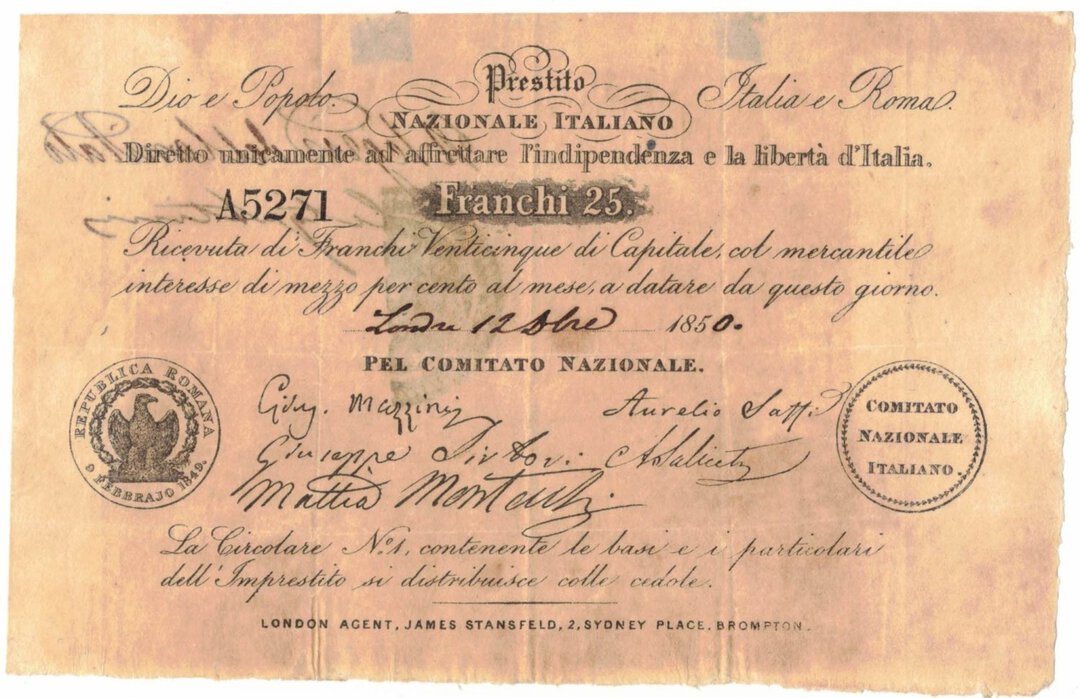 Prestito
Dio e Popolo.
Italia e Roma.
NAZIONALE ITALIANO
Diretto unicamente ad affrettare l'indipendenza e la libertà d'Italia.
A5271
Franchi 25.
Ricevuta di Franchi Venticinque di Capitale, col mercantile
interesse di mezzo per cento al mese, a datare da questo giorno.
Londra 12 Dbre 1850.
PEL COMITATO NAZIONALE.
REPUBLICA ROMANA
9 FEBBRAJO 1849.
Gius. Mazzini
Aurelio Saffi
Giuseppe Sirtori
ASaliceti
Mattia Montecchi
COMITATO
NAZIONALE
ITALIANO.
La Circolare No. 1, contenente le basi e i particolari
dell'Imprestito si distribuisce colle cedole.
LONDON AGENT, JAMES STANSFELD, 2, SYDNEY PLACE, BROMPTON.